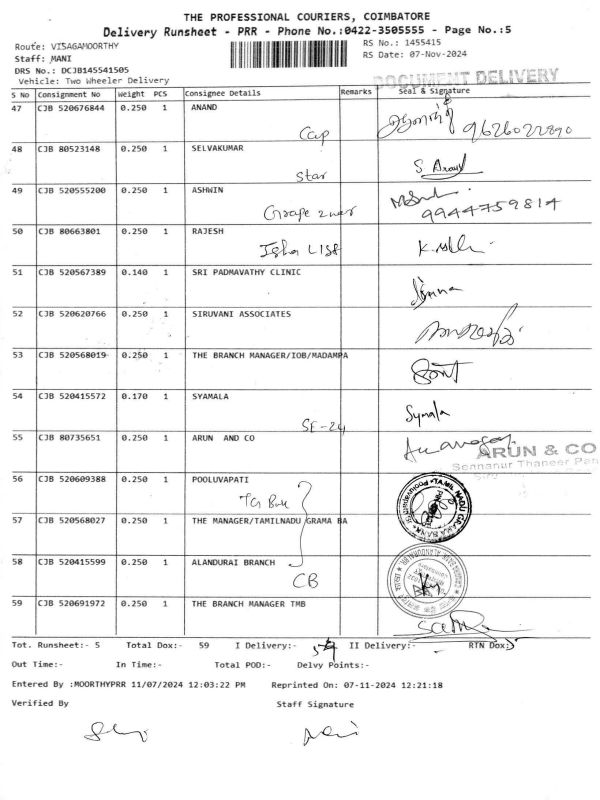 THE PROFESSIONAL COURIERS, COIMBATORE
Delivery Runsheet - PRR - Phone No.:0422-3505555 - Page No.:5
Route: VISAGAMOORTHY RS No.: 1455415
Staff: MANI RS Date: 07-Nov-2024
DRS No.: DCJB145541505
Vehicle: Two Wheeler Delivery DOCUMENT DELIVERY
S No Consignment No Weight PCS Consignee Details Remarks Seal & Signature
47 CJB 520676844 0.250 1 ANAND
Cap 9626022890
48 CJB 80523148 0.250 1 SELVAKUMAR
Star
49 CJB 520555200 0.250 1 ASHWIN
9944759814
50 CJB 80663801 0.250 1 RAJESH
Isha
51 CJB 520567389 0.140 1 SRI PADMAVATHY CLINIC
52 CJB 520620766 0.250 1 SIRUVANI ASSOCIATES
53 CJB 520568019 0.250 1 THE BRANCH MANAGER/IOB/MADAMPA
54 CJB 520415572 0.170 1 SYAMALA
Symala
SE-24
55 CJB 80735651 0.250 1 ARUN AND CO
ARUN & CO
Sennanur Thaneer Pan
56 CJB 520609388 0.250 1 POOLUVAPATI
57 CJB 520568027 0.250 1 THE MANAGER/TAMILNADU GRAMA BA
58 CJB 520415599 0.250 1 ALANDURAI BRANCH
CB
59 CJB 520691972 0.250 1 THE BRANCH MANAGER TMB
Tot. Runsheet:- 5 Total Dox:- 59 I Delivery:- II Delivery:- RTN Dox:
Out Time:- In Time:- Total POD:- Delvy Points:-
Entered By :MOORTHYPRR 11/07/2024 12:03:22 PM Reprinted On: 07-11-2024 12:21:18
Verified By Staff Signature